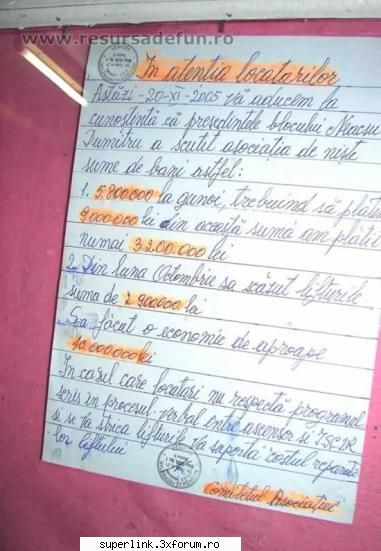 www.resursadefun.ro
In atentia locatarilor
Astăzi -20-XI-2005 Vă aducem la
cunostentă că presedintele blocului Neacsu
Dumitru a scutit asociatia de niste
sume de bani astfel:
1. 5.800.000 la gunoi, trebuind să plătim
9.000.000 lei din această suma am plătit
numai 3.200.000 lei
2. Din luna Octombrie sa scăzut lifturile
suma de 2.900.000 lei
Sa făcut o economie de aproape
10.000.000 lei
In cazul care locatari nu respectă programul
scris in procesul verbal intre ascensor si ISCIR
si se va strica lifturile va suporta costul reparatie
lor liftului
Comitetul Asociatiei
superlink.3xforum.ro